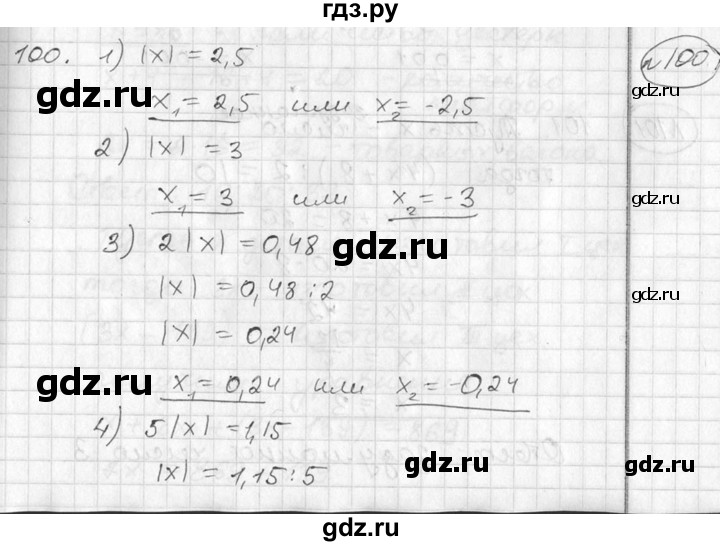 гдз.ру
100. 1) |x| = 2,5
№100
gdz.ru
gdz.ru
x₁ = 2,5 или x₂ = -2,5
gdz.ru
2) |x| = 3
x₁ = 3 или x₂ = -3
gdz.ru
3) 2|x| = 0,48
gdz.ru
|x| = 0,48 : 2
gdz.ru
|x| = 0,24
gdz.ru
x₁ = 0,24 или x₂ = -0,24
4) 5|x| = 1,15
gdz.ru
gdz.ru
|x| = 1,15 : 5
gdz.ru